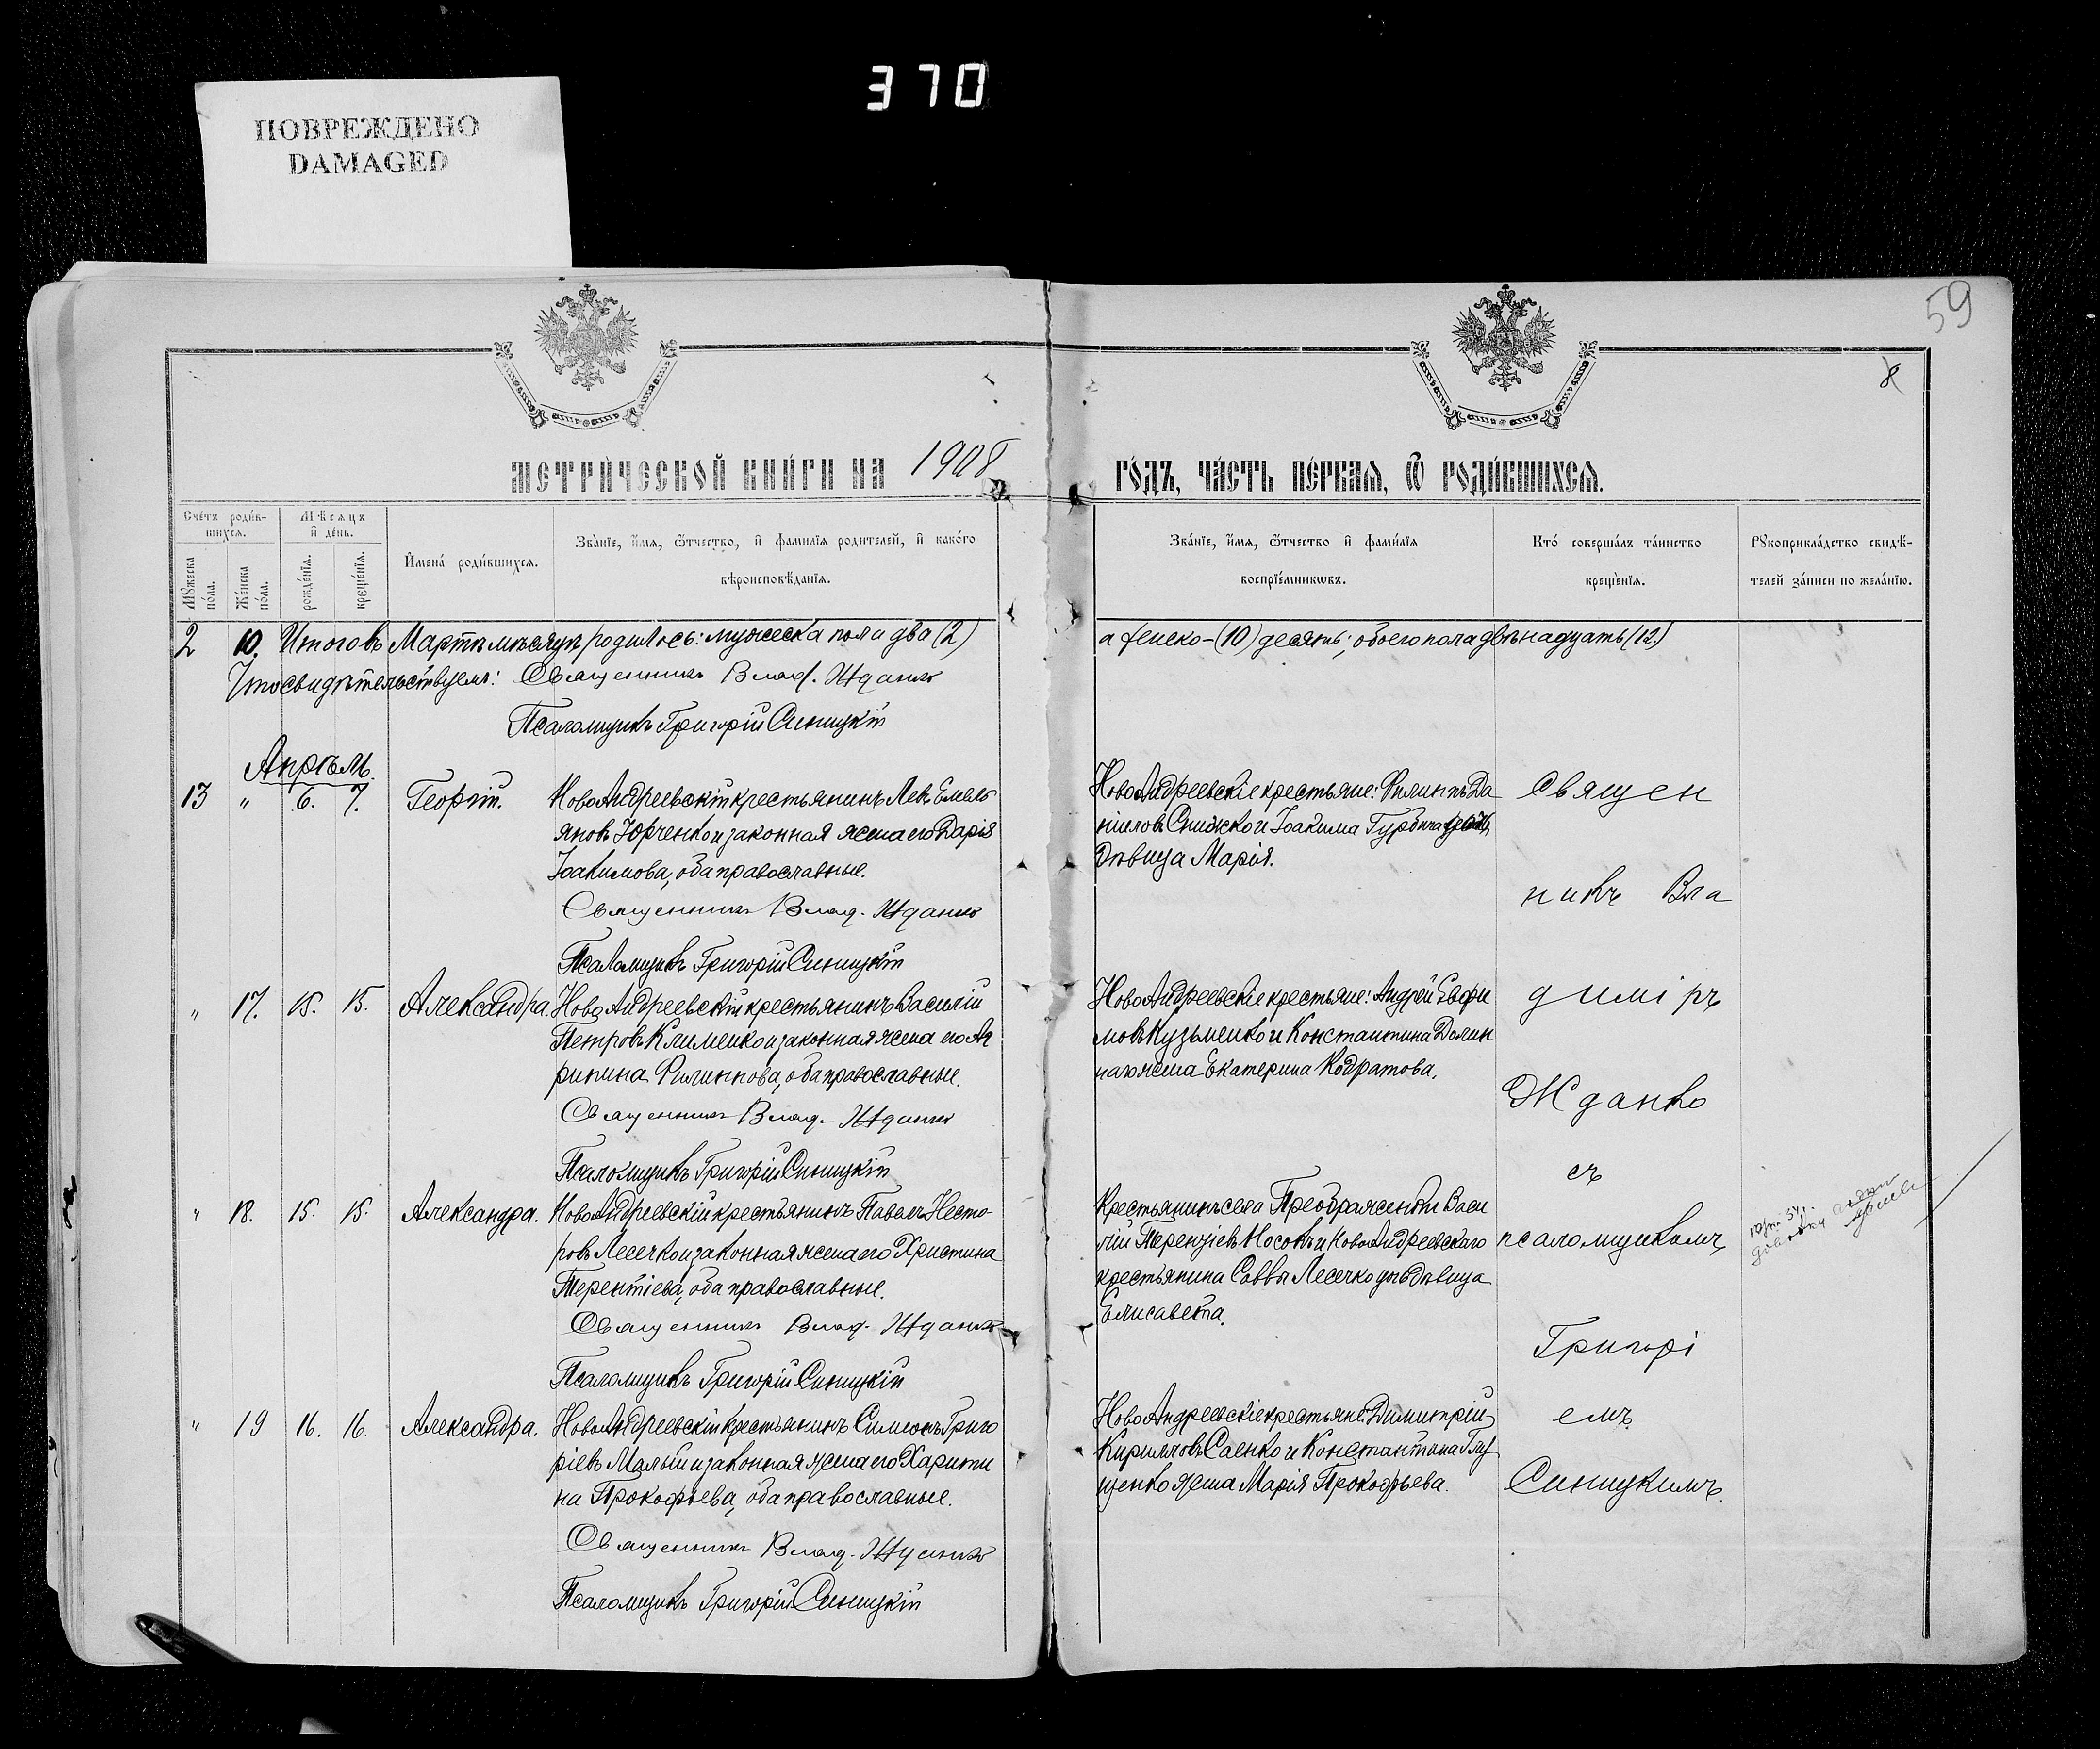 370
ПОВРЕЖДЕНО
DAMAGED
59
8
МЕТРИЧЕСКОЙ КНИГИ НА 1908 ГОДЪ, ЧАСТЬ ПЕРВАЯ, Ѿ РОДИВШИХСЯ.
Счетъ родив-
шихся.
Мѣсяцъ
и день.
Мужеска
пола.
Женска
пола.
рожденія.
крещенія.
Имена родившихся.
Званіе, имя, ѿтчество, и фамилія родителей, и какого
вѣроисповѣданія.
Званіе, имя, ѿтчество и фамилія
воспріемниковъ.
Кто совершалъ таинство
крещенія.
Рукоприкладство свидѣ-
телей записи по желанію.
2 10. Итого въ Мартѣ мѣсяцѣ родилось: мужеска пола два (2) а женска-(10) десять; обоего пола двѣнадцать (12)
Что свидѣтельствуемъ: Священникъ Влад. Жданко
Псаломщикъ Григорій Синицкій
Апрѣль.
13 " 6. 7. Георгій.
НовоАндреевскій крестьянинъ Левъ Емель
яновъ Юрченко и законная жена его Дарія
Іоакимова, оба православные.
Священникъ Влад. Жданко
Псаломщикъ Григорій Синицкій
НовоАндреевскіе крестьяне: Филиппъ Да
ніиловъ Снижко и Іоакима Гурбича
дѣвица Марія.
" 17. 15. 15. Александра.
НовоАндреевскій крестьянинъ Василій
Петровъ Клименко и законная жена его Аг
рипина Филиппова, оба православные.
Священникъ Влад. Жданко
Псаломщикъ Григорій Синицкій
НовоАндреевскіе крестьяне: Андрей Евфи
мовъ Кузьменко и Константина Долин
жена Екатерина Кодратова.
" 18. 15. 15. Александра.
НовоАндреевскій крестьянинъ Павелъ Несто-
ровъ Лесечко и законная жена его Христина
Терентіева, оба православные.
Священникъ Влад. Жданко
Псаломщикъ Григорій Синицкій
Крестьянинъ села Преображенки Васи
лій Терентіевъ Носокъ и НовоАндреевскаго
крестьянина Саввы Лесечко дочь дѣвица
Елисавета.
" 19 16. 16. Александра.
НовоАндреевскій крестьянинъ Симеонъ Григо
ріевъ Малый и законная жена его Харити
на Прокофьева, оба православные.
Священникъ Влад. Жданко
Псаломщикъ Григорій Синицкій
НовоАндреевскіе крестьяне: Димитрій
Кирилловъ Саенко и Константина Глу
щенко жена Марія Прокофьева.
Священ
никъ Вла
диміръ
Жданко
съ
псаломщикомъ
Григорі
емъ
Синицкимъ.